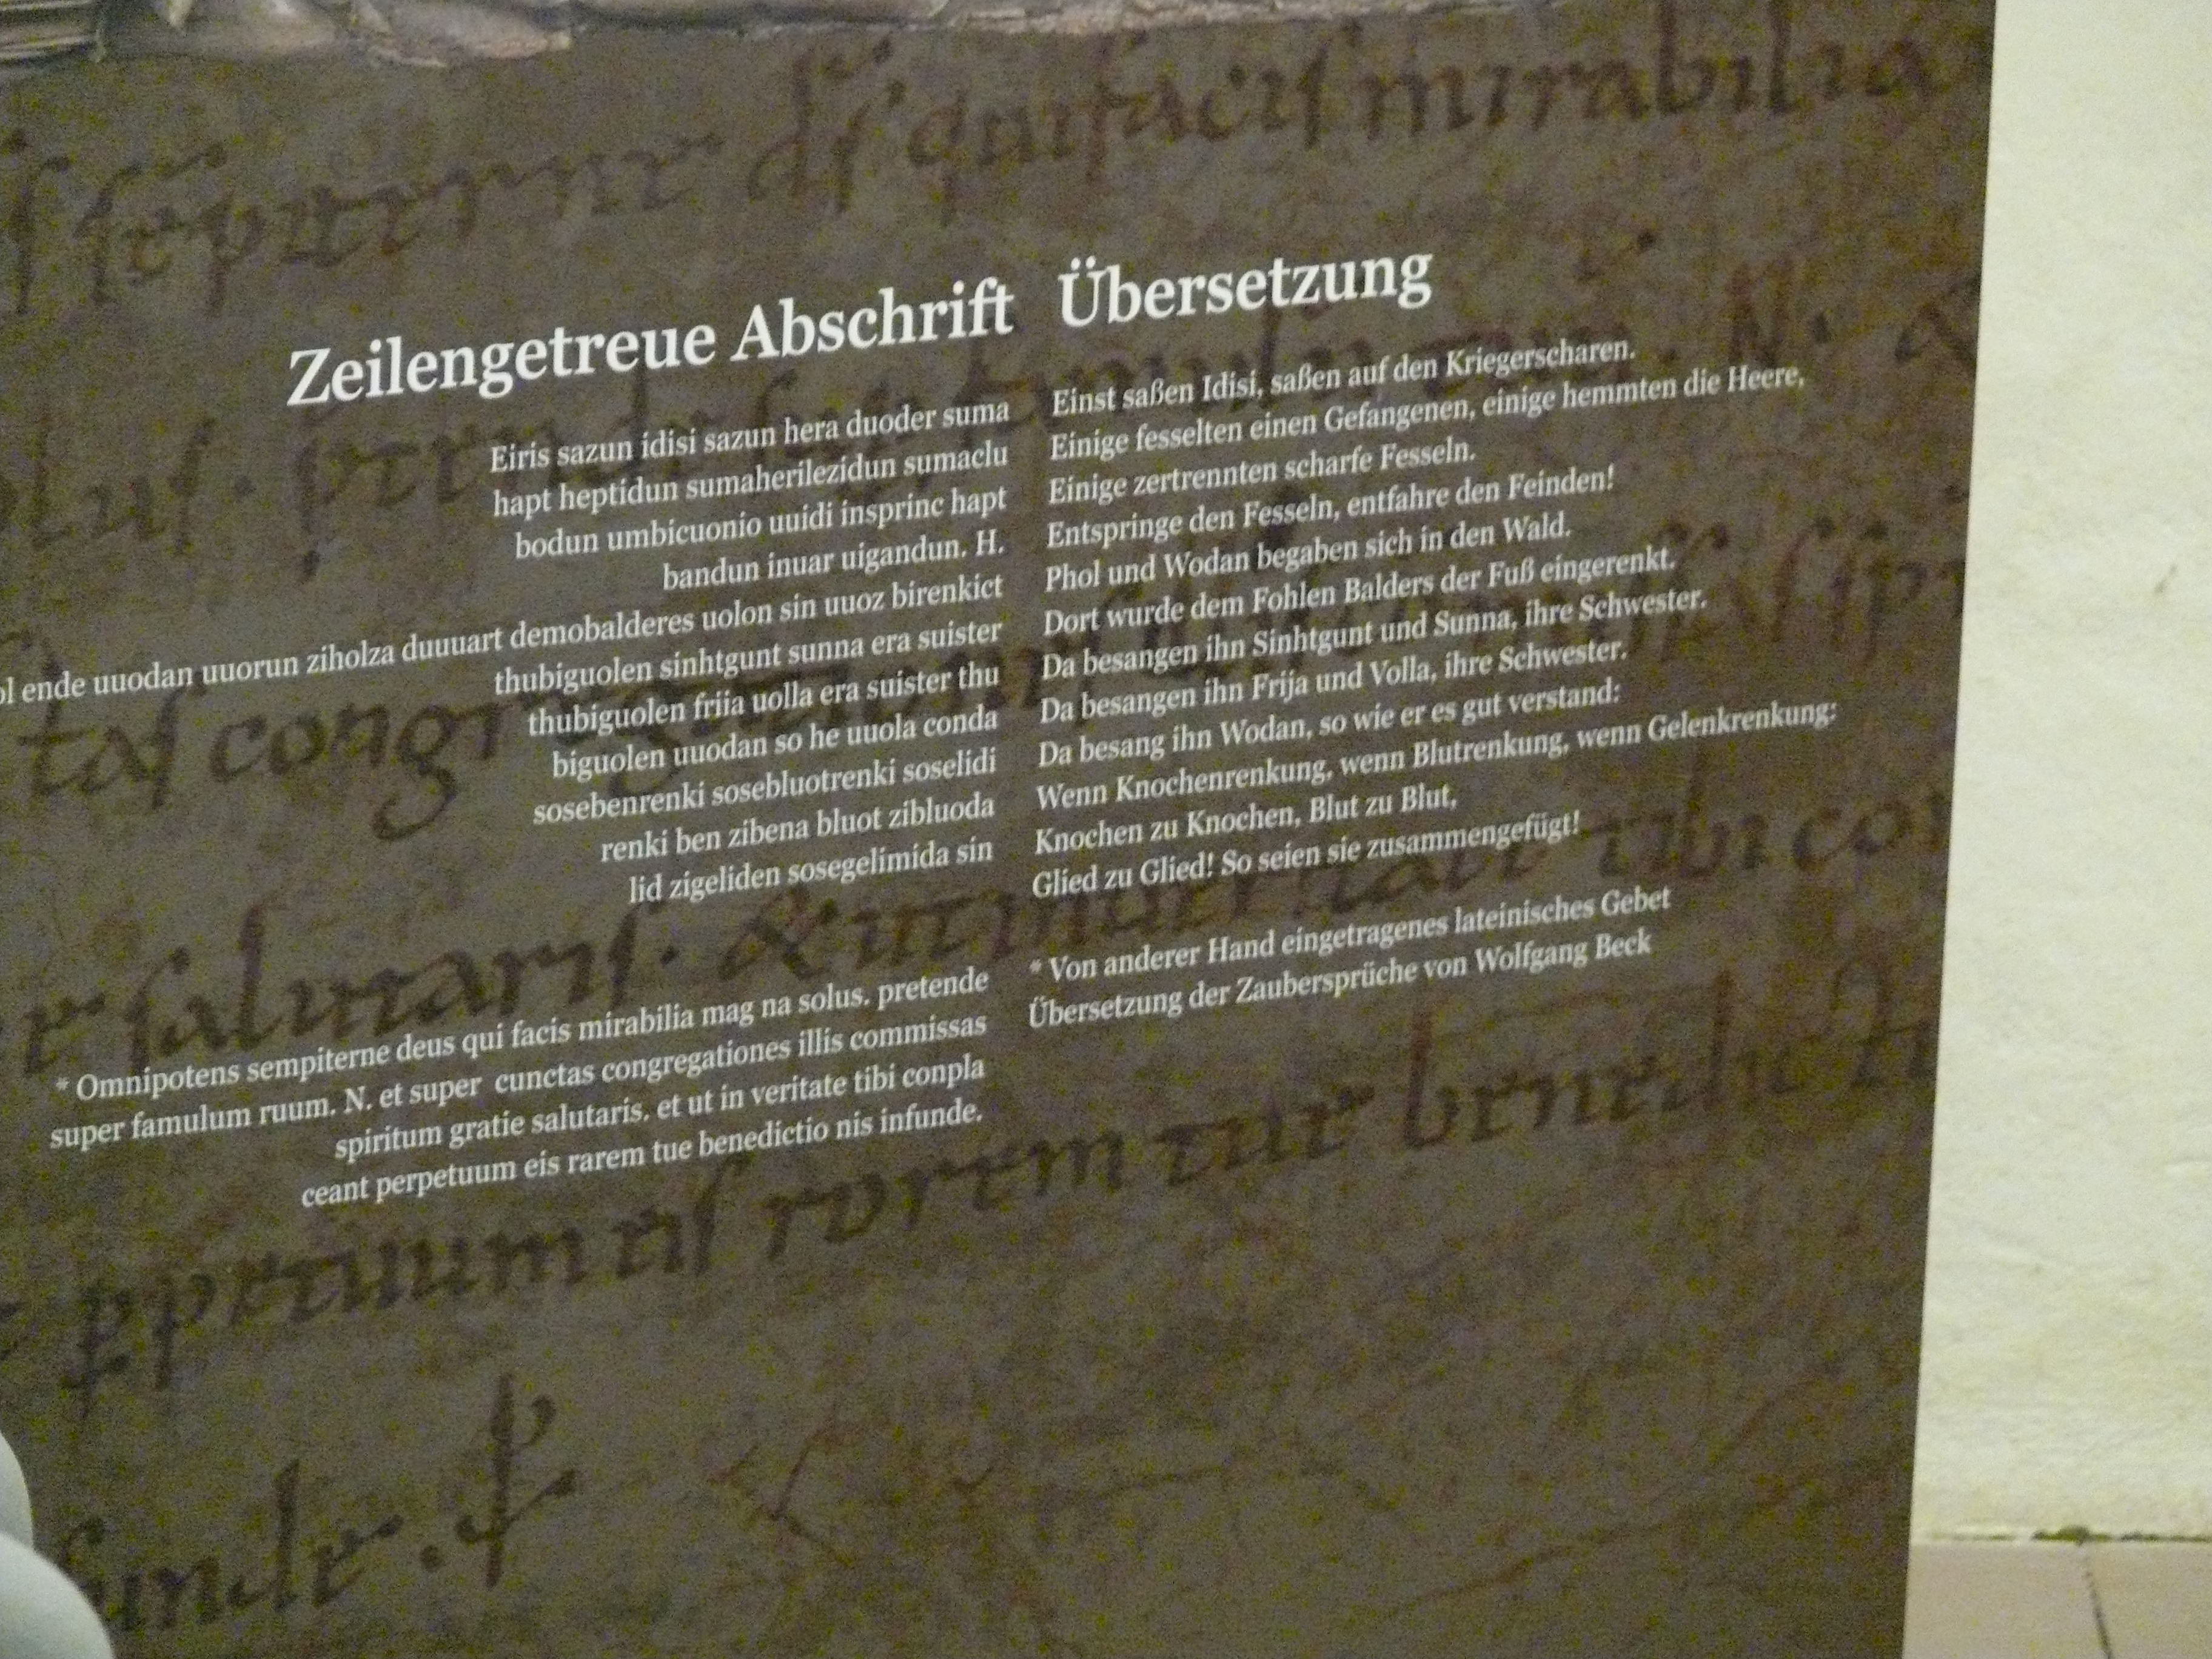 ſempiterne dſ quifaciſ mirabilia
Zeilengetreue Abschrift
Eiris sazun idisi sazun hera duoder suma
hapt heptidun sumaherilezidun sumaclu
bodun umbicuonio uuidi insprinc hapt
bandun inuar uigandun. H.
ende uuodan uuorun ziholza duuuart demobalderes uolon sin uuoz birenkict
thubiguolen sinhtgunt sunna era suister
thubiguolen friia uolla era suister thu
biguolen uuodan so he uuola conda
sosebenrenki sosebluotrenki soselidi
renki ben zibena bluot zibluoda
lid zigeliden sosegelimida sin
* Omnipotens sempiterne deus qui facis mirabilia mag na solus. pretende
super famulum ruum. N. et super cunctas congregationes illis commissas
spiritum gratie salutaris. et ut in veritate tibi conpla
ceant perpetuum eis rarem tue benedictio nis infunde.
Übersetzung
Einst saßen Idisi, saßen auf den Kriegerscharen.
Einige fesselten einen Gefangenen, einige hemmten die Heere,
Einige zertrennten scharfe Fesseln.
Entspringe den Fesseln, entfahre den Feinden!
Phol und Wodan begaben sich in den Wald.
Dort wurde dem Fohlen Balders der Fuß eingerenkt.
Da besangen ihn Sinhtgunt und Sunna, ihre Schwester.
Da besangen ihn Frija und Volla, ihre Schwester.
Da besang ihn Wodan, so wie er es gut verstand:
Wenn Knochenrenkung, wenn Blutrenkung, wenn Gelenkrenkung:
Knochen zu Knochen, Blut zu Blut,
Glied zu Glied! So seien sie zusammengefügt!
* Von anderer Hand eingetragenes lateinisches Gebet
Übersetzung der Zaubersprüche von Wolfgang Beck